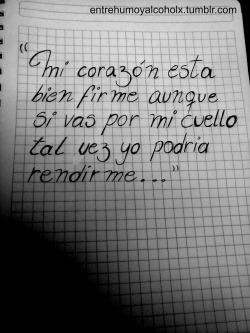 entrehumoyalcoholx.tumblr.com
"mi corazón esta
bien firme aunque
si vas por mi cuello
tal vez yo podria
rendirme..."